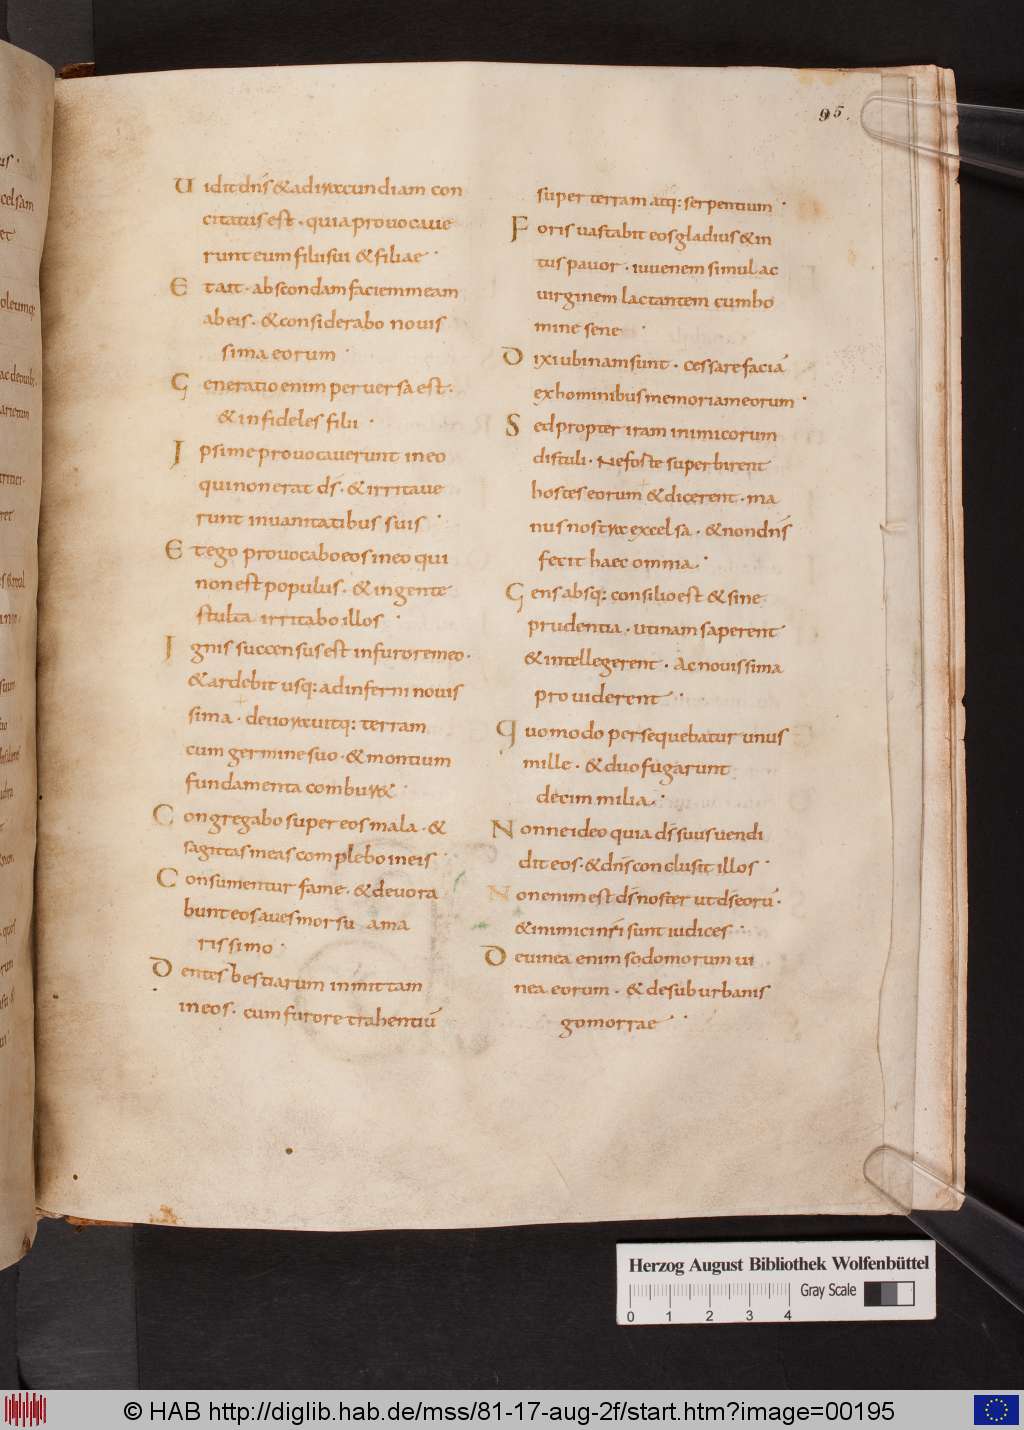 95.
Uidit dn̄s & ad iracundiam con
citatus est · quia provocave
runt eum filii sui & filiae ·
Et ait · abscondam faciem meam
ab eis · & considerabo novis
sima eorum ·
Generatio enim perversa est ·
& infideles filii ·
Ipsi me provocaverunt in eo
qui non erat d̄s · & irritave
runt in vanitatibus suis ·
Et ego provocabo eos in eo qui
non est populus · & in gente
stulta irritabo illos ·
Ignis succensus est in furore meo ·
& ardebit usq: ad inferni novis
sima · devoravitq: terram
cum germine suo · & montium
fundamenta combur& ·
Congregabo super eos mala · &
sagittas meas complebo in eis ·
Consumentur fame · & devora
bunt eos aves morsu ama
rissimo ·
Dentes bestiarum inmittam
in eos · cum furore trahentiū
super terram atq: serpentium ·
Foris vastabit eos gladius & in
tus pavor · iuvenem simul ac
virginem lactantem cum ho
mine sene ·
Dixi ubinam sunt · cessare faciā
ex hominibus memoriam eorum ·
Sed propter iram inimicorum
distuli · Ne forte superbirent
hostes eorum & dicerent · ma
nus nostra excelsa · & non dn̄s
fecit haec omnia ·
Gens absq: consilio est & sine
prudentia · utinam saperent
& intellegerent · Ac novissima
providerent ·
Quomodo persequebatur unus
mille · & duo fugarunt
decim milia ·
Nonne ideo quia d̄s suus vendi
dit eos · & dn̄s conclusit illos ·
Non enim est d̄s noster ut d̄s eorū ·
& inimici nr̄i sunt iudices ·
De vinea enim sodomorum vi
nea eorum · & de suburbanis
gomorrae ·
Herzog August Bibliothek Wolfenbüttel
Gray Scale
0 1 2 3 4
© HAB http://diglib.hab.de/mss/81-17-aug-2f/start.htm?image=00195